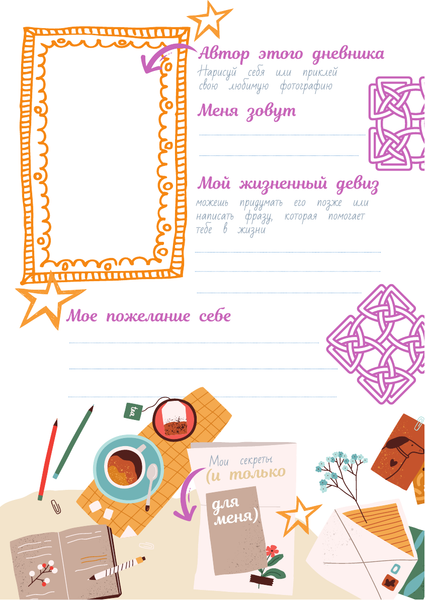 Автор этого дневника
Нарисуй себя или приклей
свою любимую фотографию
Меня зовут
Мой жизненный девиз
можешь придумать его позже или
написать фразу, которая помогает
тебе в жизни
Мое пожелание себе
tea
Мои секреты
(и только
для
меня)